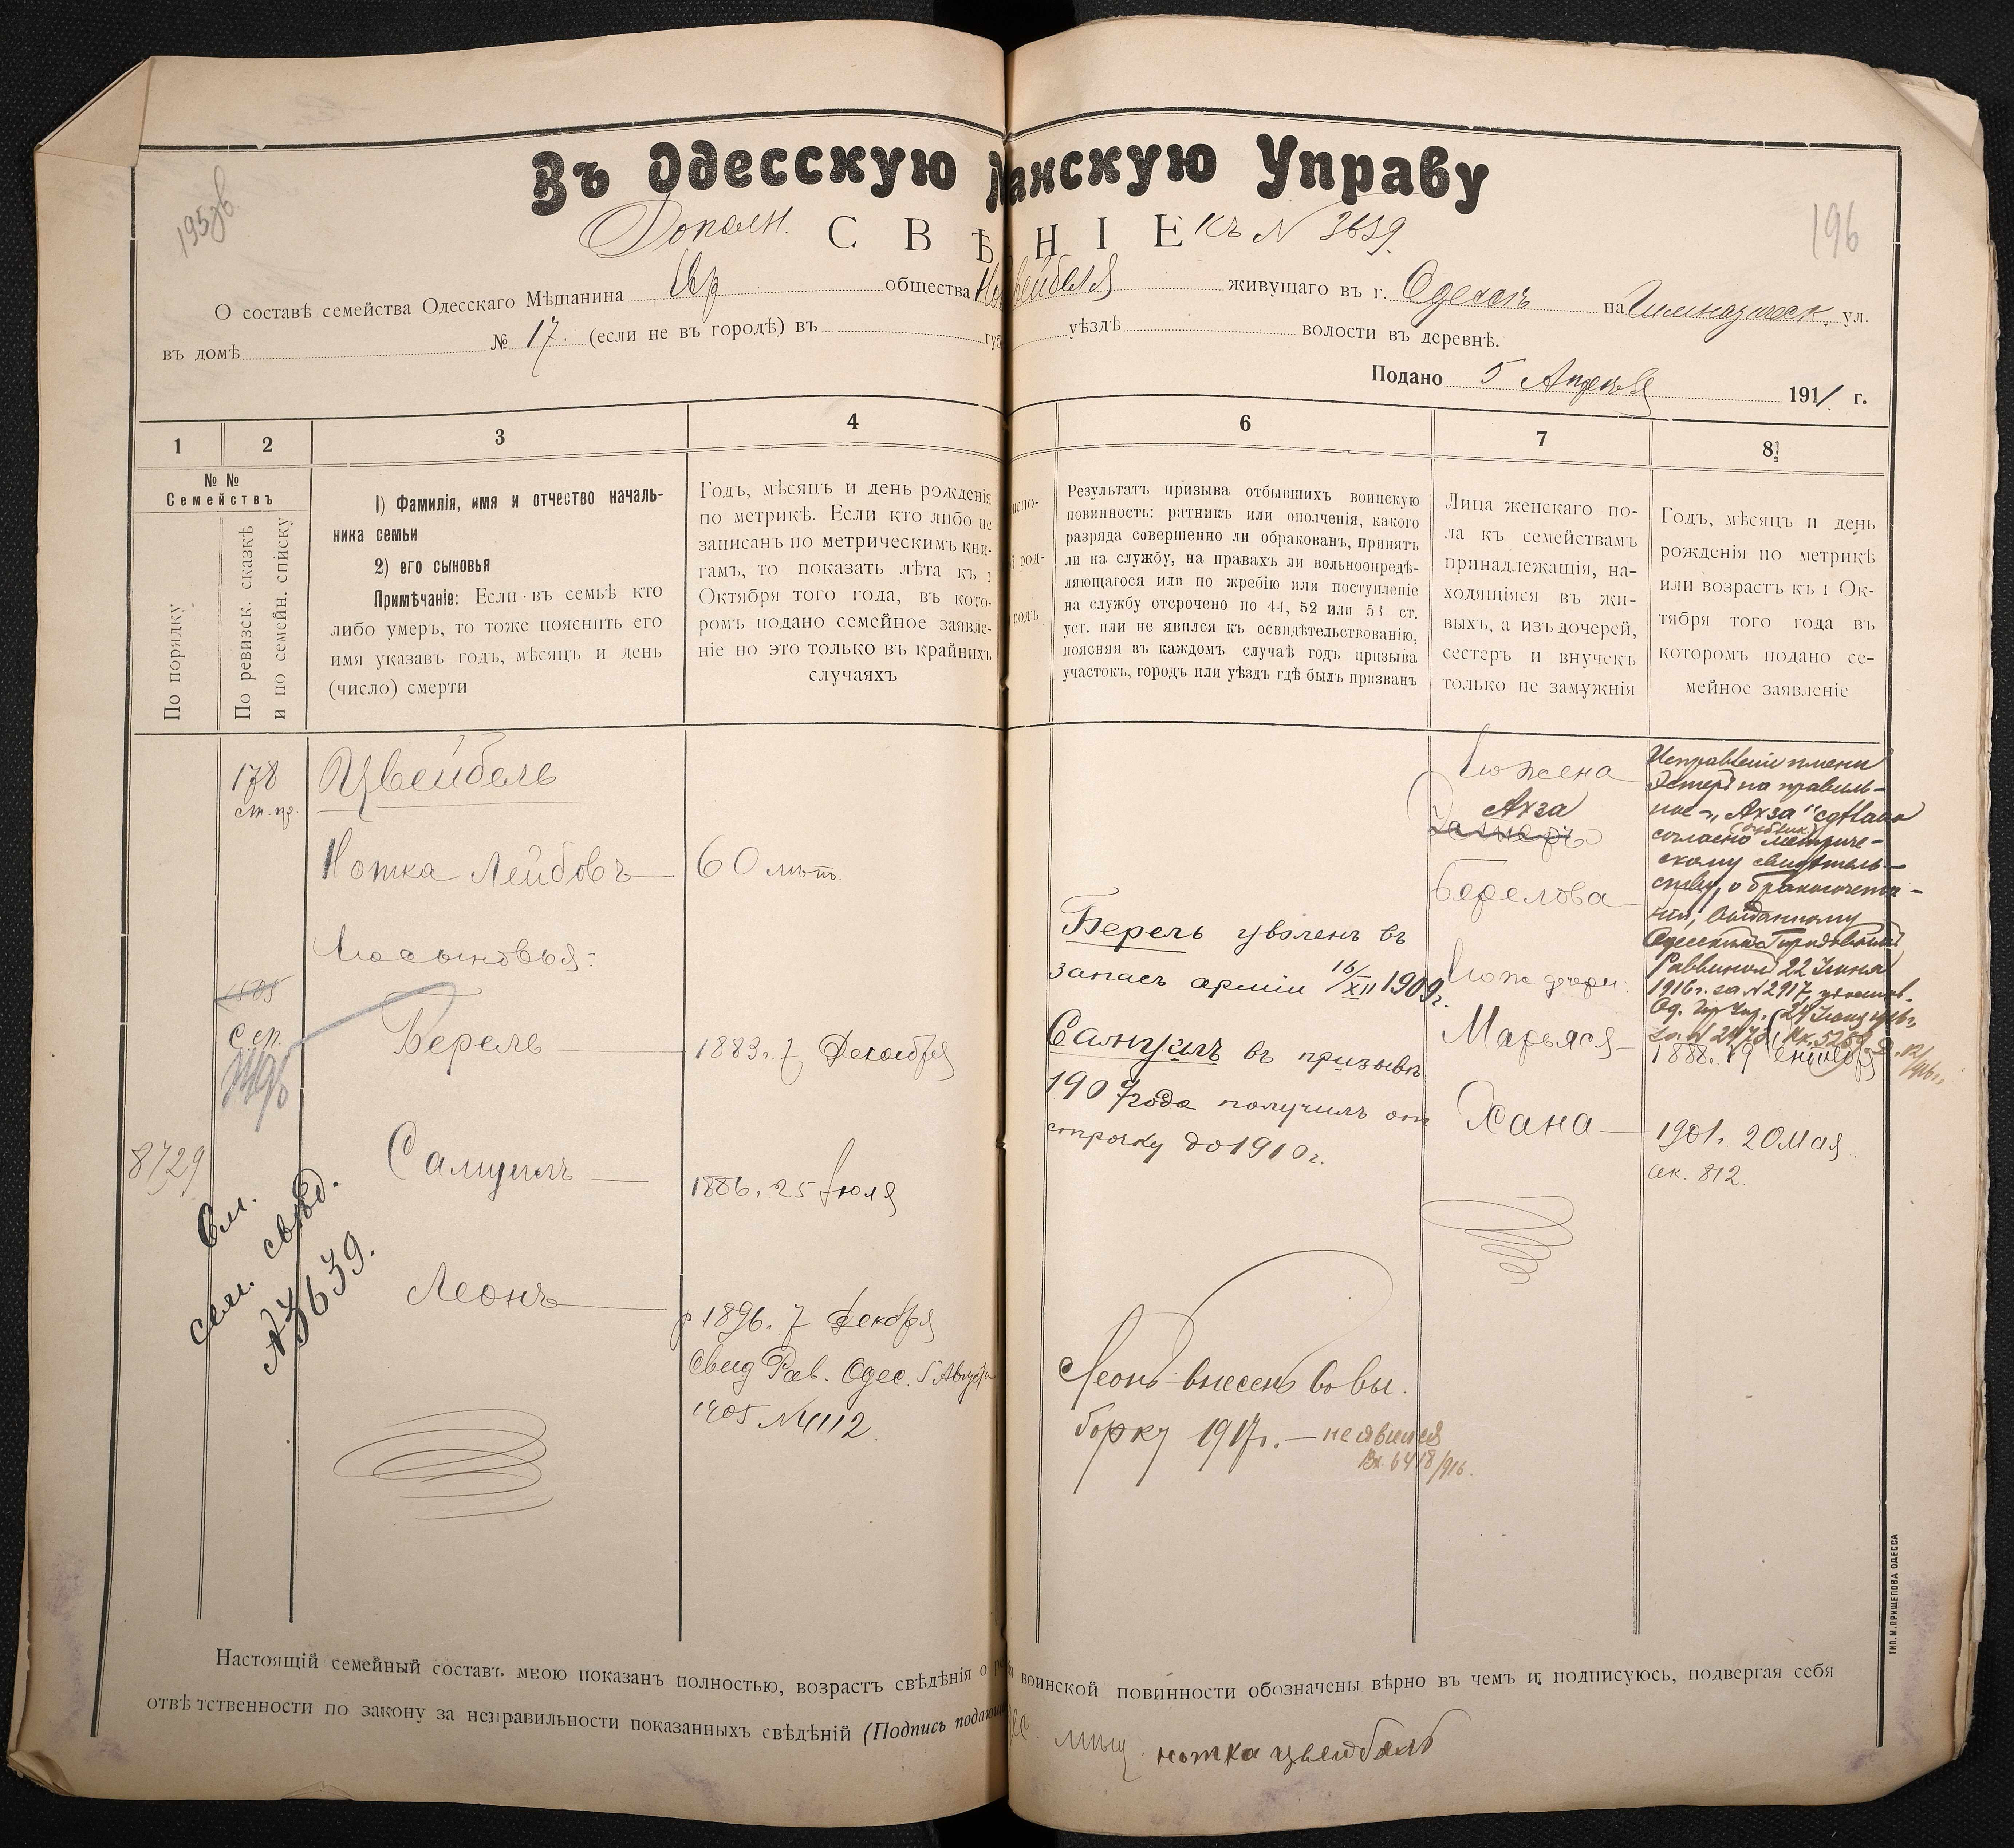 Въ Одесскую анскую Управу
Дополн. С В Ѣ Н І Е къ № 3639.
195 об
196
О составѣ семейства Одесскаго Мѣщанина Евр общества живущаго въ г. Одессѣ на Гимназическ. ул.
въ домѣ № 17. (если не въ городѣ) въ губ уѣздѣ волости въ деревнѣ.
Подано 5 Апрѣля 1911 г.
1
2
3
4
6
7
8
№ №
Семействъ
По порядку
По ревизск. сказкѣ
и по семейн. списку
1) Фамилія, имя и отчество началь-
ника семьи
2) его сыновья
Примѣчаніе: Если въ семьѣ кто
либо умеръ, то тоже пояснить его
имя указавъ годъ, мѣсяцъ и день
(число) смерти
Годъ, мѣсяцъ и день рожденія
по метрикѣ. Если кто либо не
записанъ по метрическимъ кни-
гамъ, то показать лѣта къ 1
Октября того года, въ кото-
ромъ подано семейное заявле-
ніе но это только въ крайнихъ
случаяхъ
Результатъ призыва отбывшихъ воинскую
повинность: ратникъ или ополченія, какого
разряда совершенно ли обракованъ, принятъ
ли на службу, на правахъ ли вольноопредѣ-
ляющагося или по жребію или поступленіе
на службу отсрочено по 44, 52 или 53 ст.
уст. или не явился къ освидѣтельствованію,
поясняя въ каждомъ случаѣ годъ призыва
участокъ, городъ или уѣздъ гдѣ былъ призванъ
Лица женскаго по-
ла къ семействамъ
принадлежащія, на-
ходящіяся въ жи-
выхъ, а изъ дочерей,
сестеръ и внучекъ
только не замужнія
Годъ, мѣсяцъ и день
рожденія по метрикѣ
или возрастъ къ 1 Ок-
тября того года въ
которомъ подано се-
мейное заявленіе
178
ст. пр.
Цвейбель
Нотка Лейбовъ
60 лѣтъ.
Его сыновья:
1885
С. сп.
Берель
1883 г. 7 Декабря
8729
Самуилъ
1886. 25 Іюля
См.
сем. свѣд.
№ 3639.
Леонъ
р 1896. 7 Декабря
Свид Рав. Одес. 5 Августа
1905 № 4112
Берель уволенъ въ
запасъ арміи 16/XII 1909 г.
Самуилъ въ призывъ
1907 года получилъ от
строчку до 1910 г.
Леонъ внесенъ во вы.
борку 1917 г. — не явился
Вх. 6418/916.
Его жена
Ахза
Берелова
Его дочери:
Марьяся
1888. 19
Хана
1901 г. 20 Мая
ак. 812.
Исправленіе имени
на правиль-
ное — "Ахза" сдѣлано
согласно метриче-
скому свидѣтель-
ству, о бракосочета-
ніи, выданному
Одесскимъ Городовымъ
Раввиномъ 22 Іюня
1916 г. за № 2917,
Настоящій семейный составъ мною показанъ полностью, возрастъ свѣдѣнія о воинской повинности обозначены вѣрно въ чемъ и подписуюсь, подвергая себя
отвѣтственности по закону за неправильности показанныхъ свѣдѣній (Подпись подающ
мѣщ. нотка цвейбель
ТИП. М. ПРИЩЕПОВА ОДЕССА